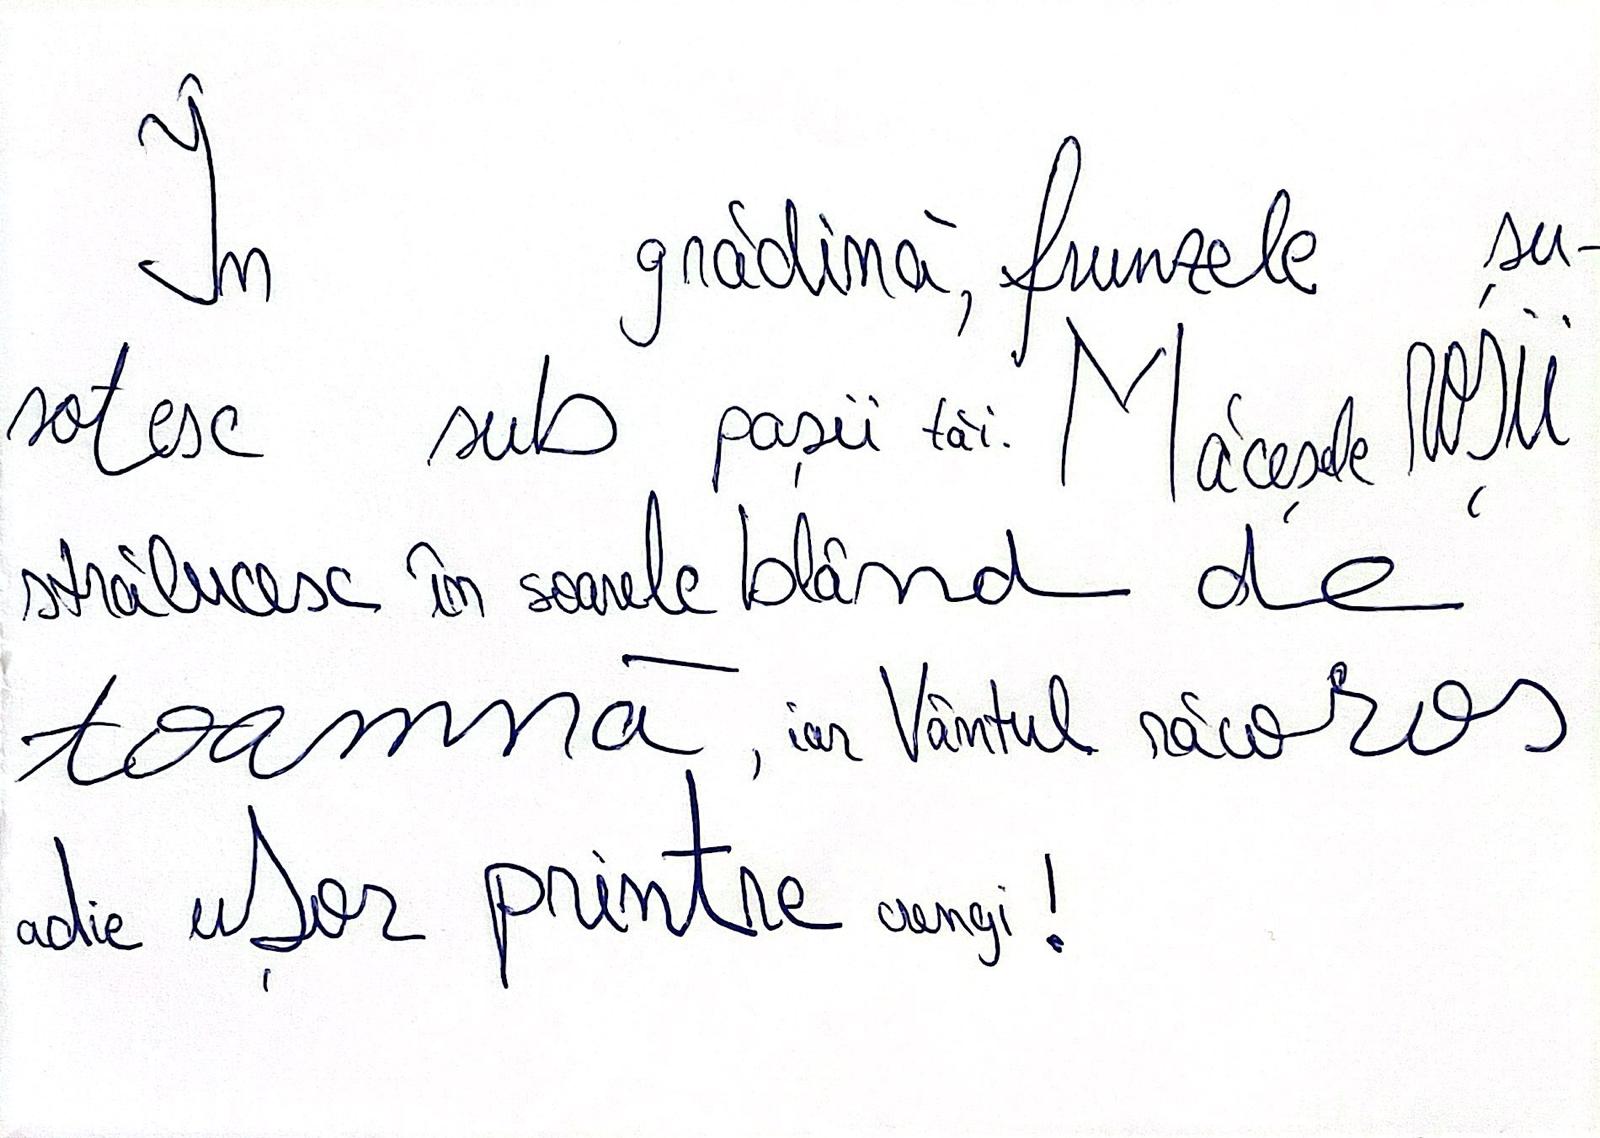 În grădină, frunzele șu-
sotesc sub pașii tăi. Măceșele roșii
strălucesc în soarele blând de
toamnă, iar Vântul răcoros
adie ușor printre crengi!